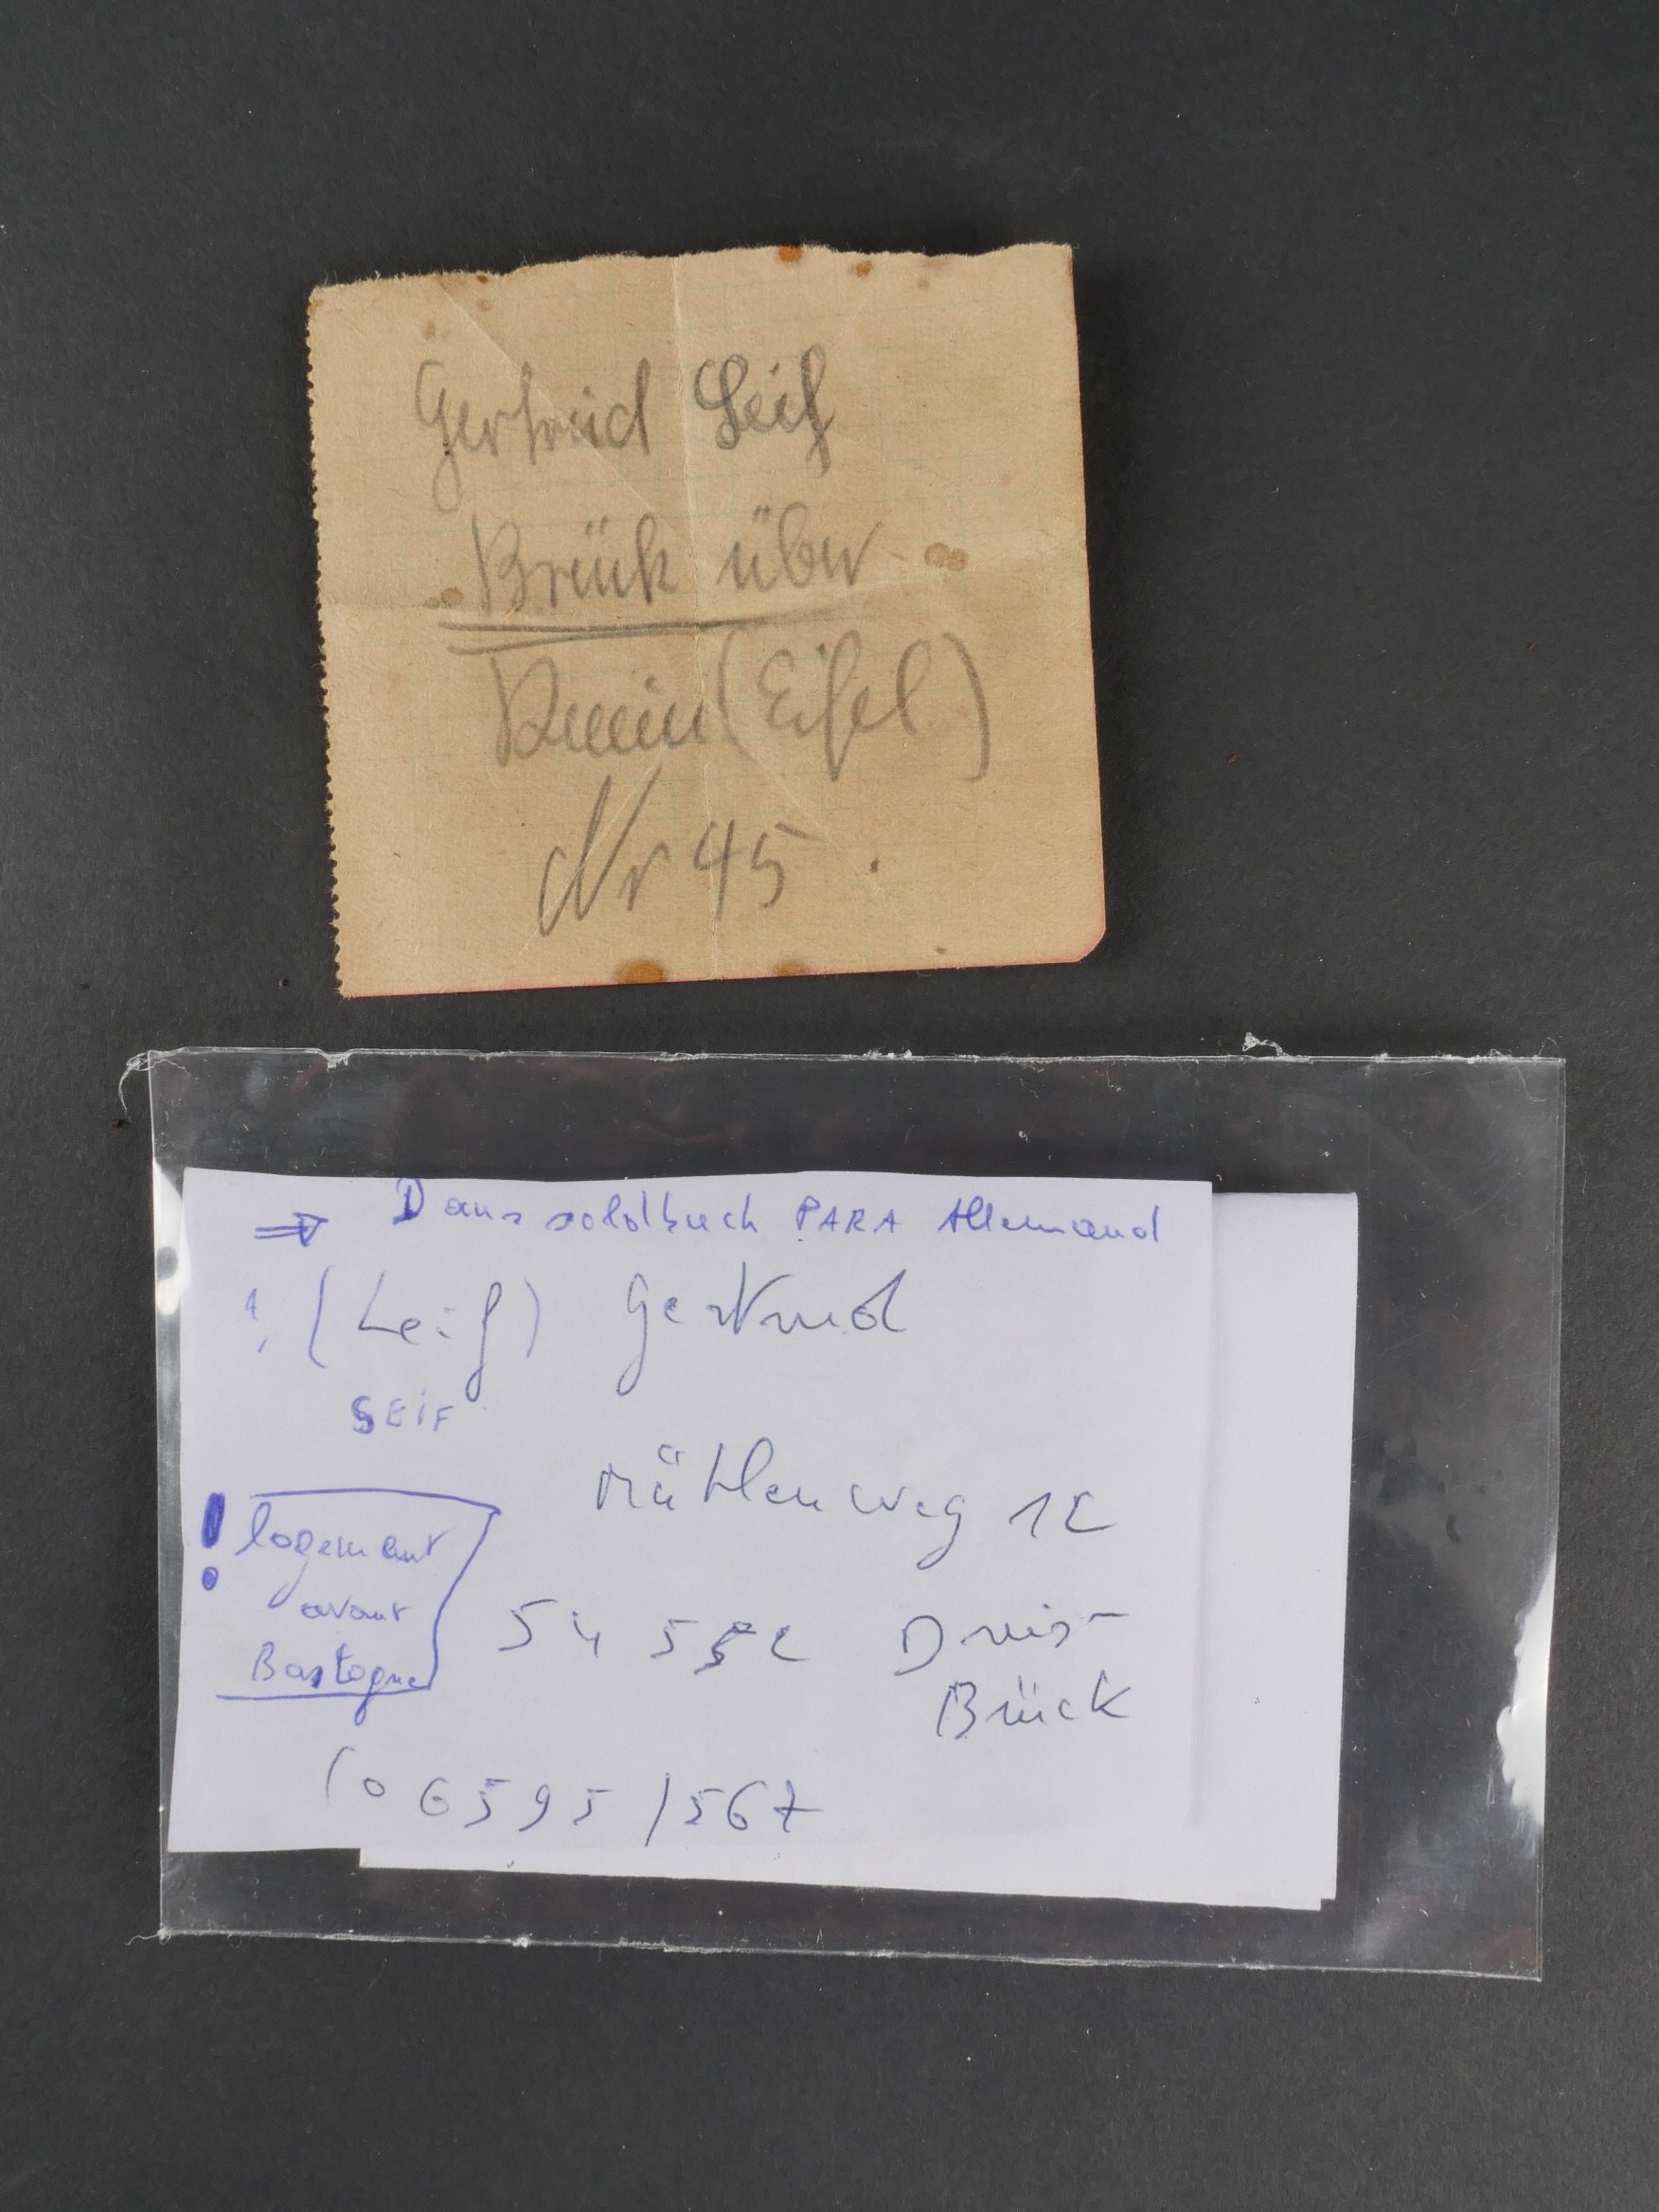 Gertrud Seif
Brück über
Daun (Eifel)
Nr 45.
⇒ Dans soldbuch PARA Allemand
(Leif) Gertrud
SEIF
Mühlenweg 12
! logement
avant
Bastogne
54552 Dreis-
Brück
(06595/567